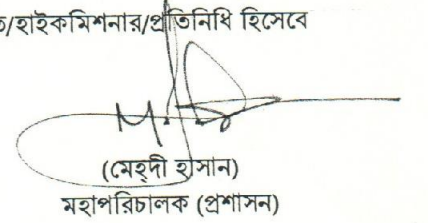 /হাইকমিশনার/প্রতিনিধি হিসেবে
(মেহ্দী হাসান)
মহাপরিচালক (প্রশাসন)